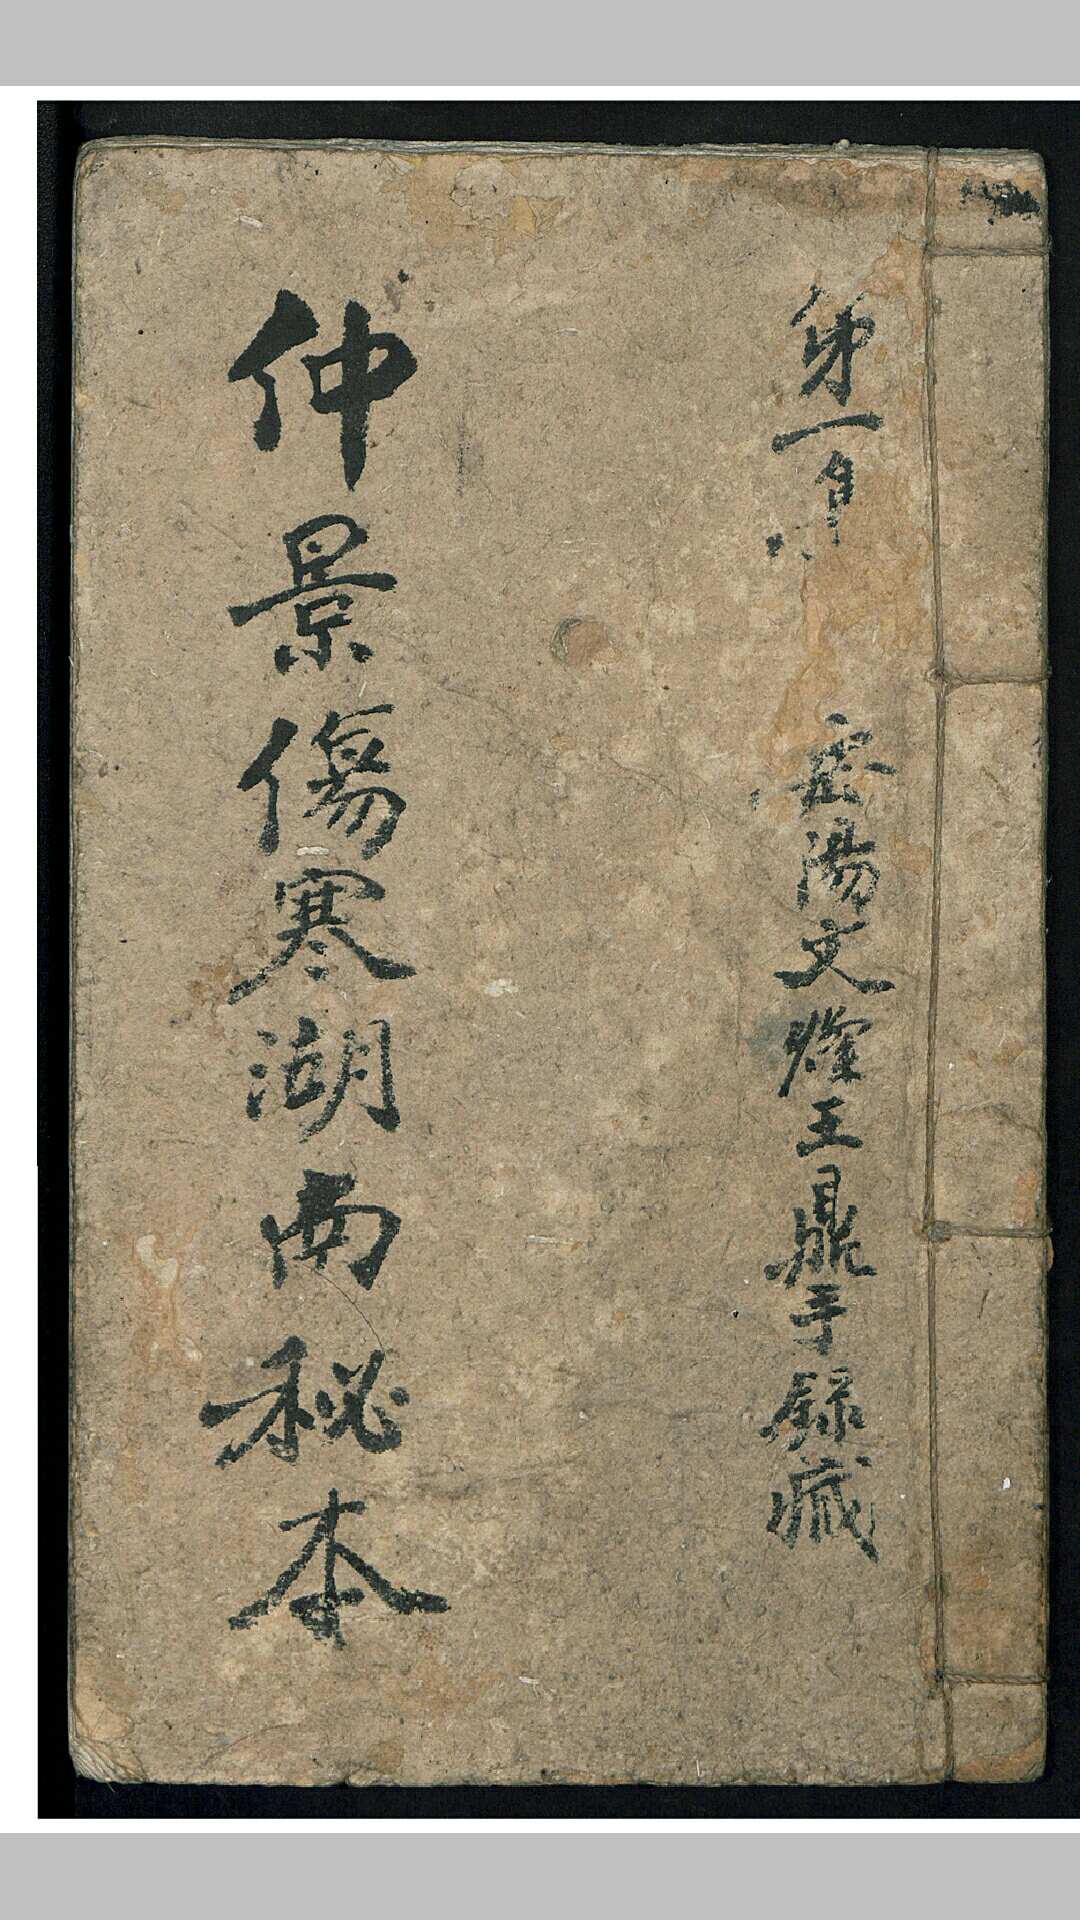 第一自
岳陽文燦王鼎手録藏
仲景傷寒湖南秘本